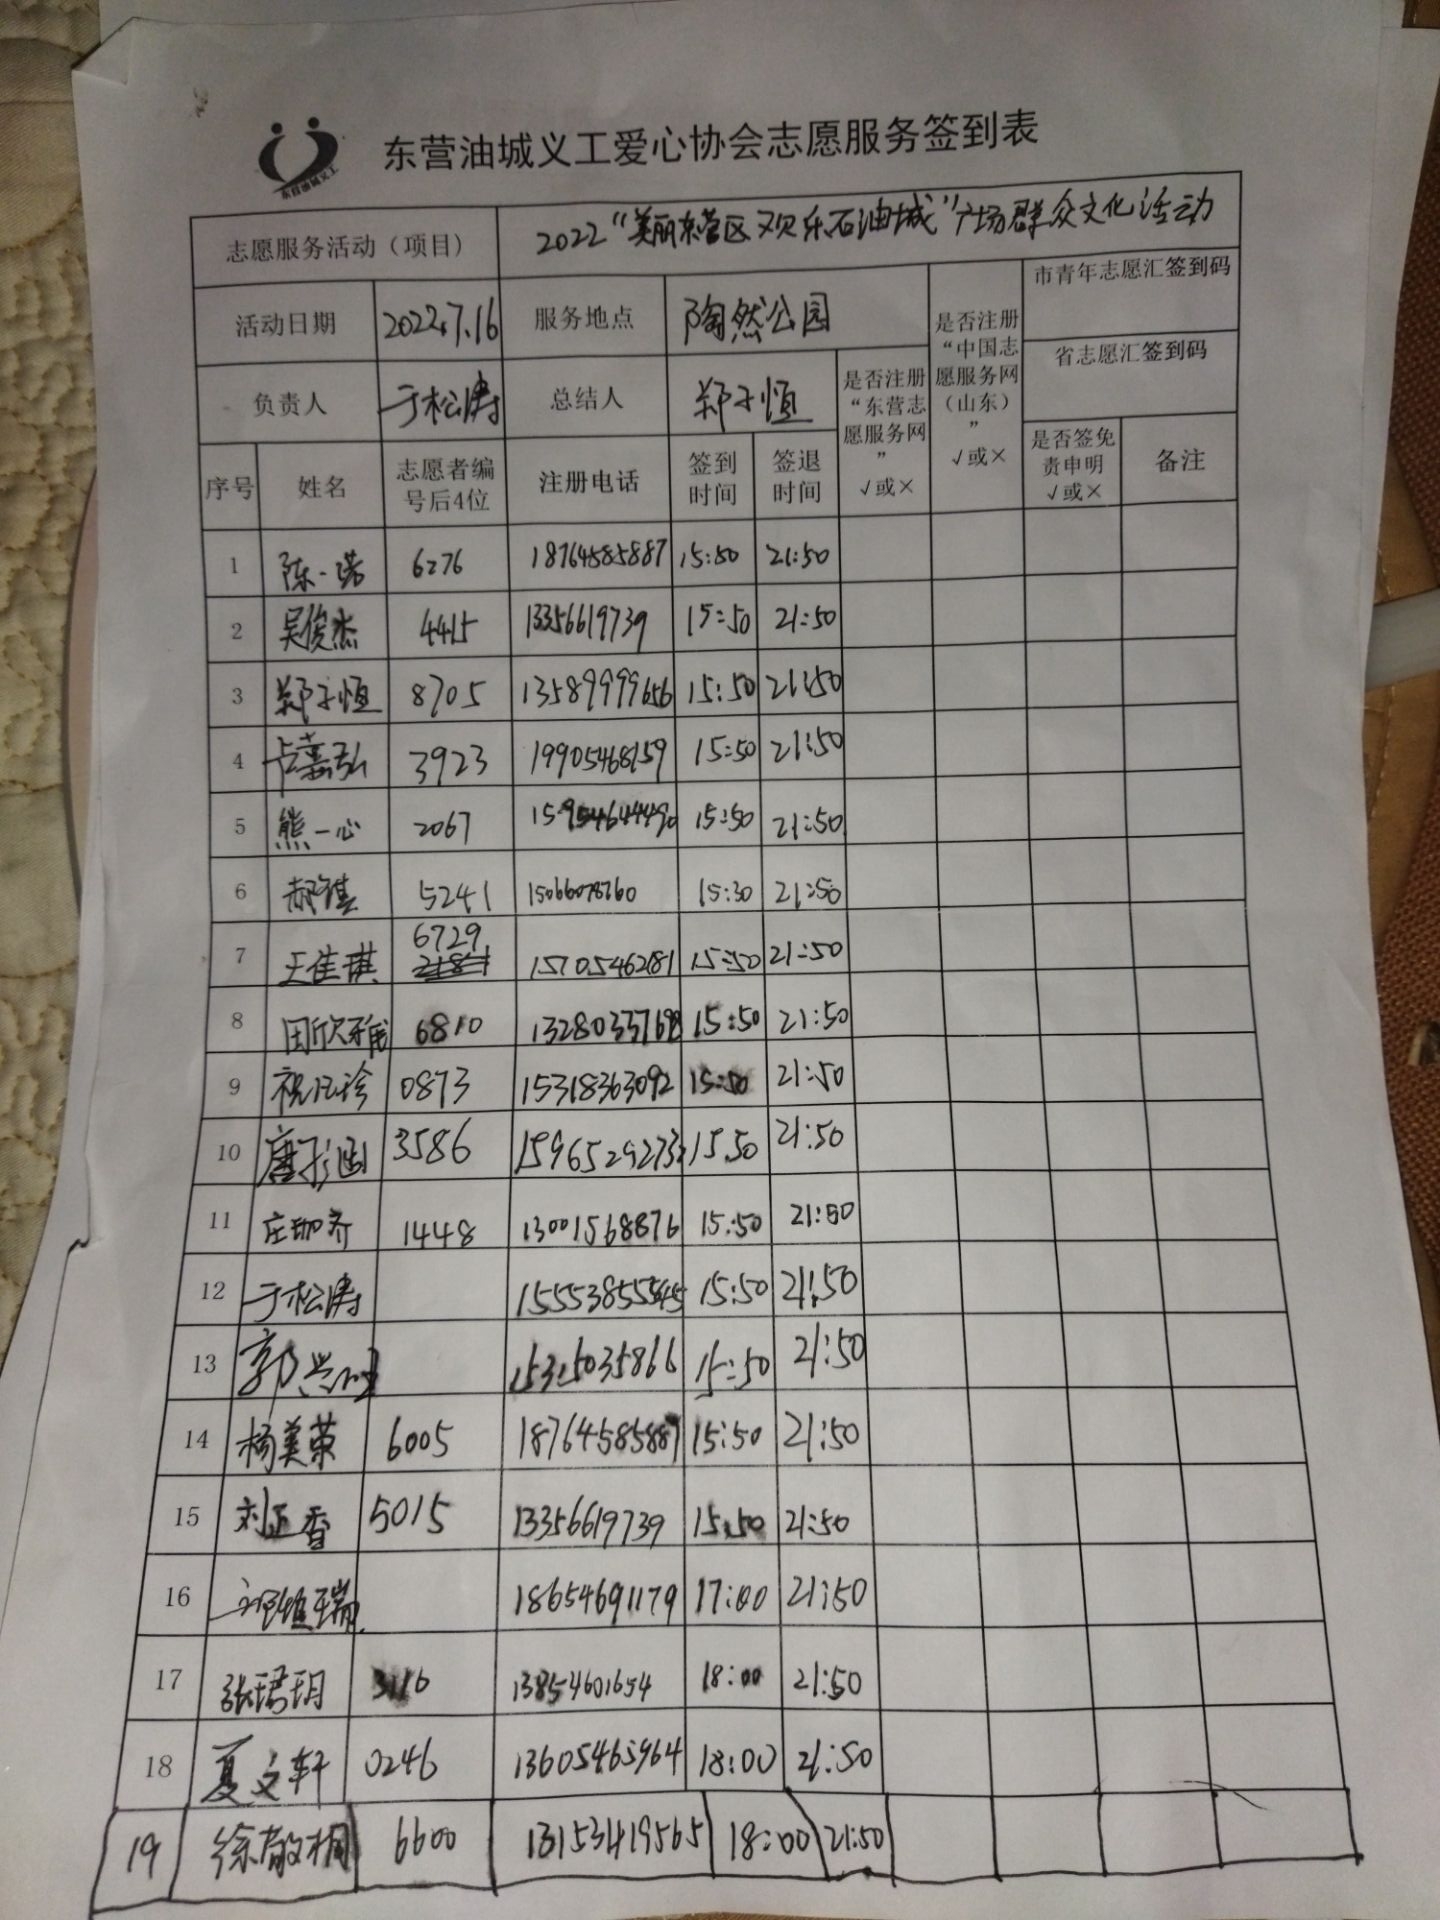 东营油城义工
东营油城义工爱心协会志愿服务签到表
志愿服务活动（项目） 2022“美丽东营区欢乐石油城”广场群众文化活动
活动日期 2022.7.16 服务地点 陶然公园 是否注册“中国志愿服务网（山东）” √或× 市青年志愿汇签到码
省志愿汇签到码
负责人 于松涛 总结人 郑子恒 是否注册“东营志愿服务网” √或×
序号 姓名 志愿者编号后4位 注册电话 签到时间 签退时间 是否签免责申明 √或× 备注
1 陈一诺 6276 18764585887 15:50 21:50
2 吴俊杰 4415 13356619739 15:50 21:50
3 郑子恒 8705 13589999656 15:50 21:50
4 卢嘉弘 3923 19905468159 15:50 21:50
5 熊一心 2067 15:50 21:50
6 5241 15066078760 15:30 21:50
7 王佳琪 6729 15705462181 15:50 21:50
8 田欣雅 6810 15:50 21:50
9 祝凡珍 0873 15318363092 15:50 21:50
10 唐于涵 3586 15.50 21:50
11 庄珈齐 1448 13001568876 15:50 21:50
12 于松涛 15:50 21:50
13 郭兴 15315035866 15:50 21:50
14 杨美荣 6005 18764585887 15:50 21:50
15 刘正香 5015 13356619739 15:50 21:50
16 18654691179 17:00 21:50
17 张珺玥 3116 13854601654 18:00 21:50
18 夏文轩 0246 13605465964 18:00 21:50
19 徐敬桐 6600 13153419565 18:00 21:50